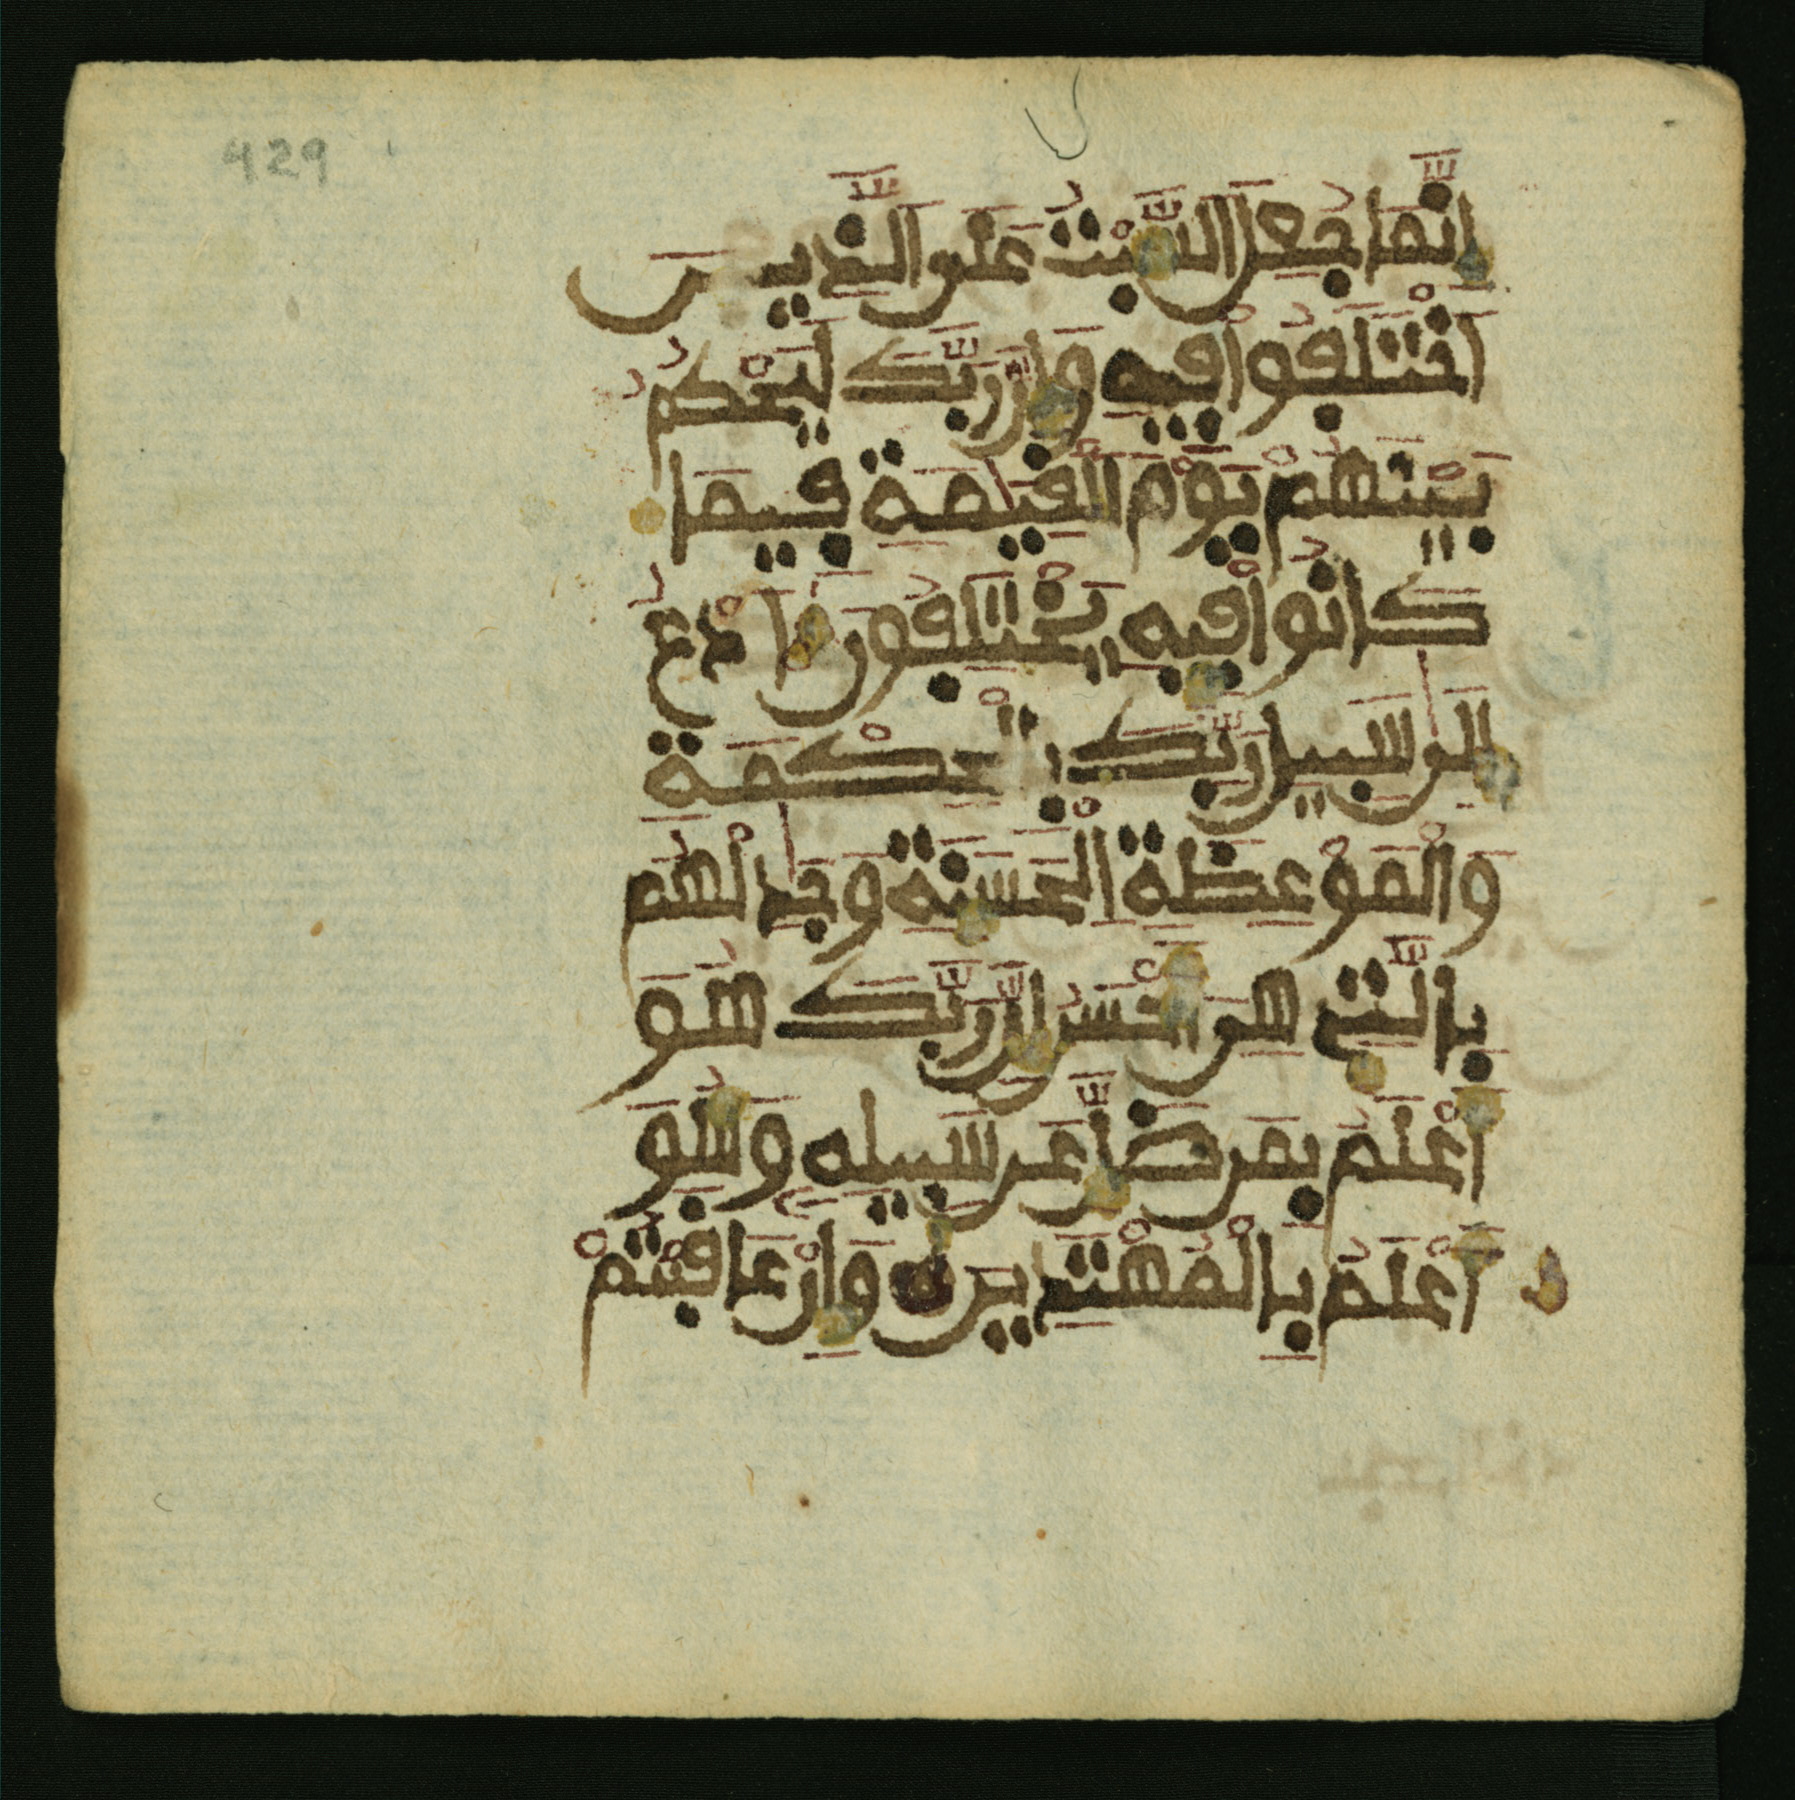 429
اِنَّمَا جُعِلَ السَّبْتُ عَلَى الَّذِينَ
اَخْتَلَفُوا فِيهِ وَإِنَّ رَبَّكَ لَيَحْكُمُ
بَيْنَهُمْ يَوْمَ الْقِيَٰمَةِ فِيمَا
كَانُوا فِيهِ يَخْتَلِفُونَ اَدْعُ
إِلَىٰ سَبِيلِ رَبِّكَ بِالْحِكْمَةِ
وَالْمَوْعِظَةِ الْحَسَنَةِ وَجَٰدِلْهُم
بِالَّتِي هِيَ أَحْسَنُ إِنَّ رَبَّكَ هُوَ
أَعْلَمُ بِمَن ضَلَّ عَن سَبِيلِهِ وَهُوَ
أَعْلَمُ بِالْمُهْتَدِينَ ه وَإِنْ عَاقَبْتُمْ